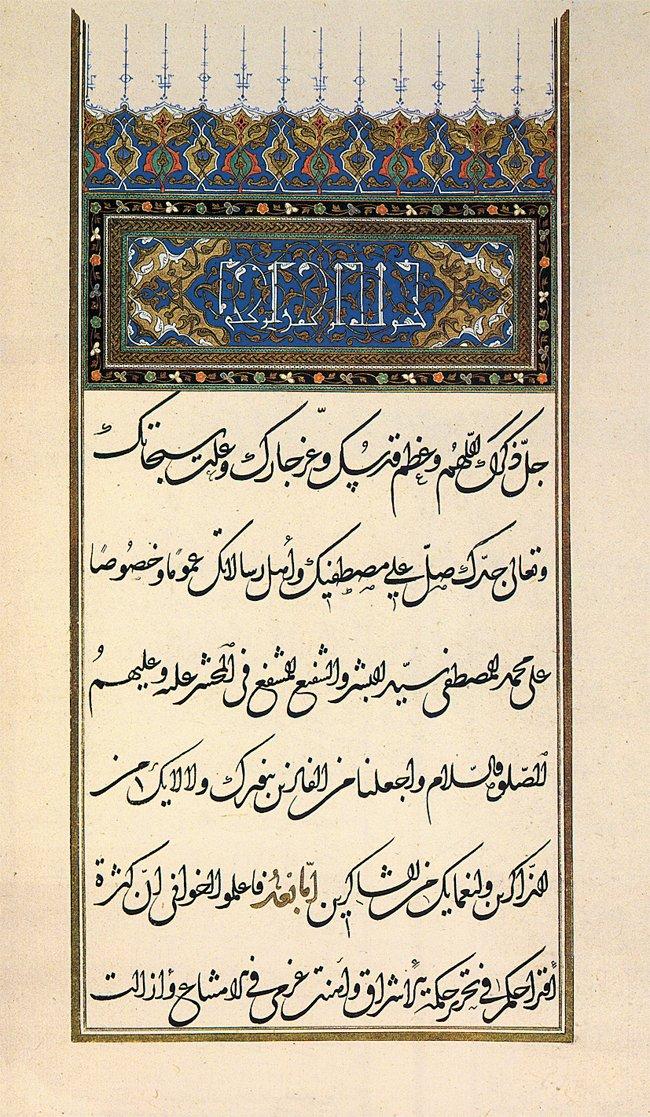 جلّ ذكرك اللّهمّ وعظم قدسك وعزّ جارك وعلت سبحاتك
وتعالى جدّك صلّ على مصطفيك وأهل رسالاتك عموماً وخصوصاً
على محمد المصطفى سيّد البشر والشفيع المشفع فى المحشر عليه وعليهمُ
الصّلوة والسّلام واجعلنا من الفائزين بنورك ولالايك من
الذاكرين ولنعمايك من الشاكرين أمّا بعدُ فاعلموا اخوانى انّ كثرة
أقتراحكم فى تحرير حكمة الاشراق وأهنت عزمى فى الامتناع وأزالت